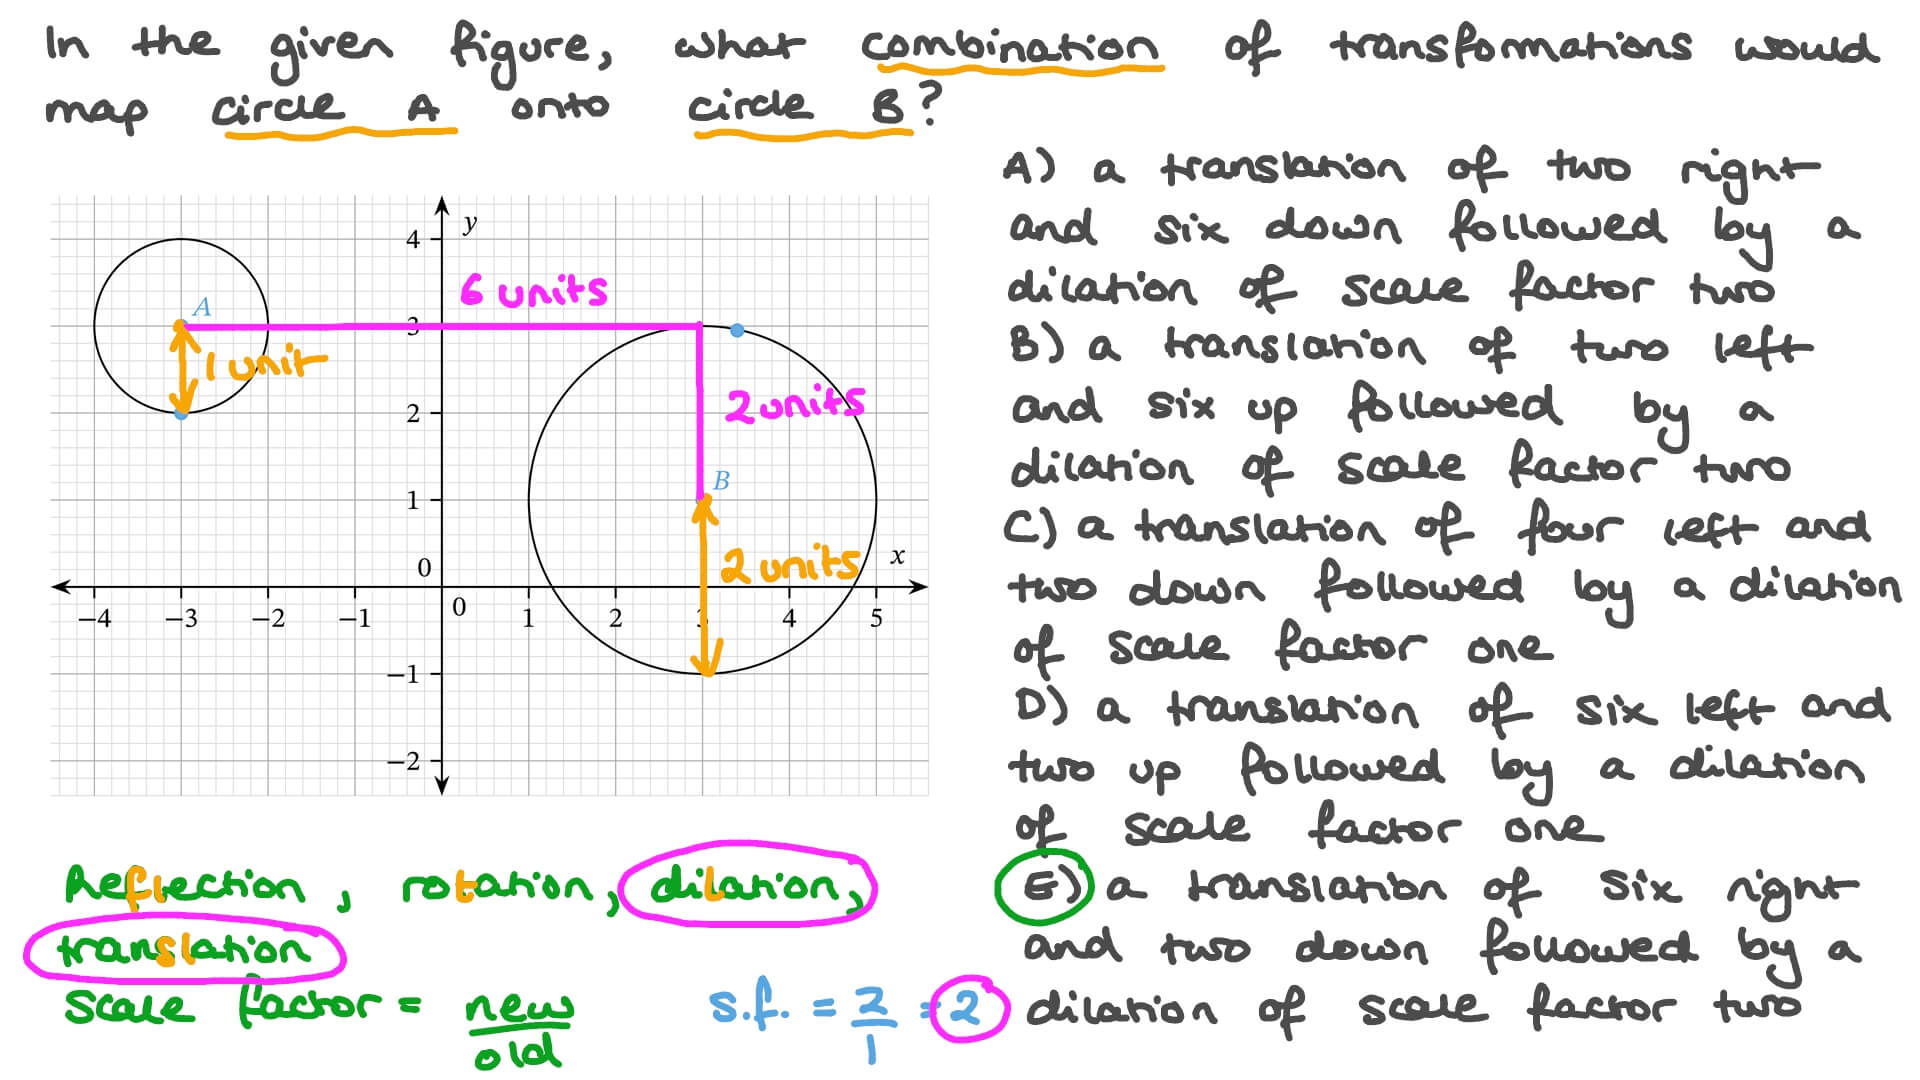 In the given figure, what combination of transformations would
map circle A onto circle B?
A) a translation of two right
and six down followed by a
dilation of scale factor two
B) a translation of two left
and six up followed by a
dilation of scale factor two
C) a translation of four left and
two down followed by a dilation
of scale factor one
D) a translation of six left and
two up followed by a dilation
of scale factor one
E) a translation of six right
and two down followed by a
dilation of scale factor two
y
4
6 units
A
3
1 unit
2 units
2
B
1
2 units
x
0
0
−4 −3 −2 −1 1 2 3 4 5
−1
−2
Reflection, rotation, dilation,
translation
Scale factor = new
old
s.f. = 2 = 2
1